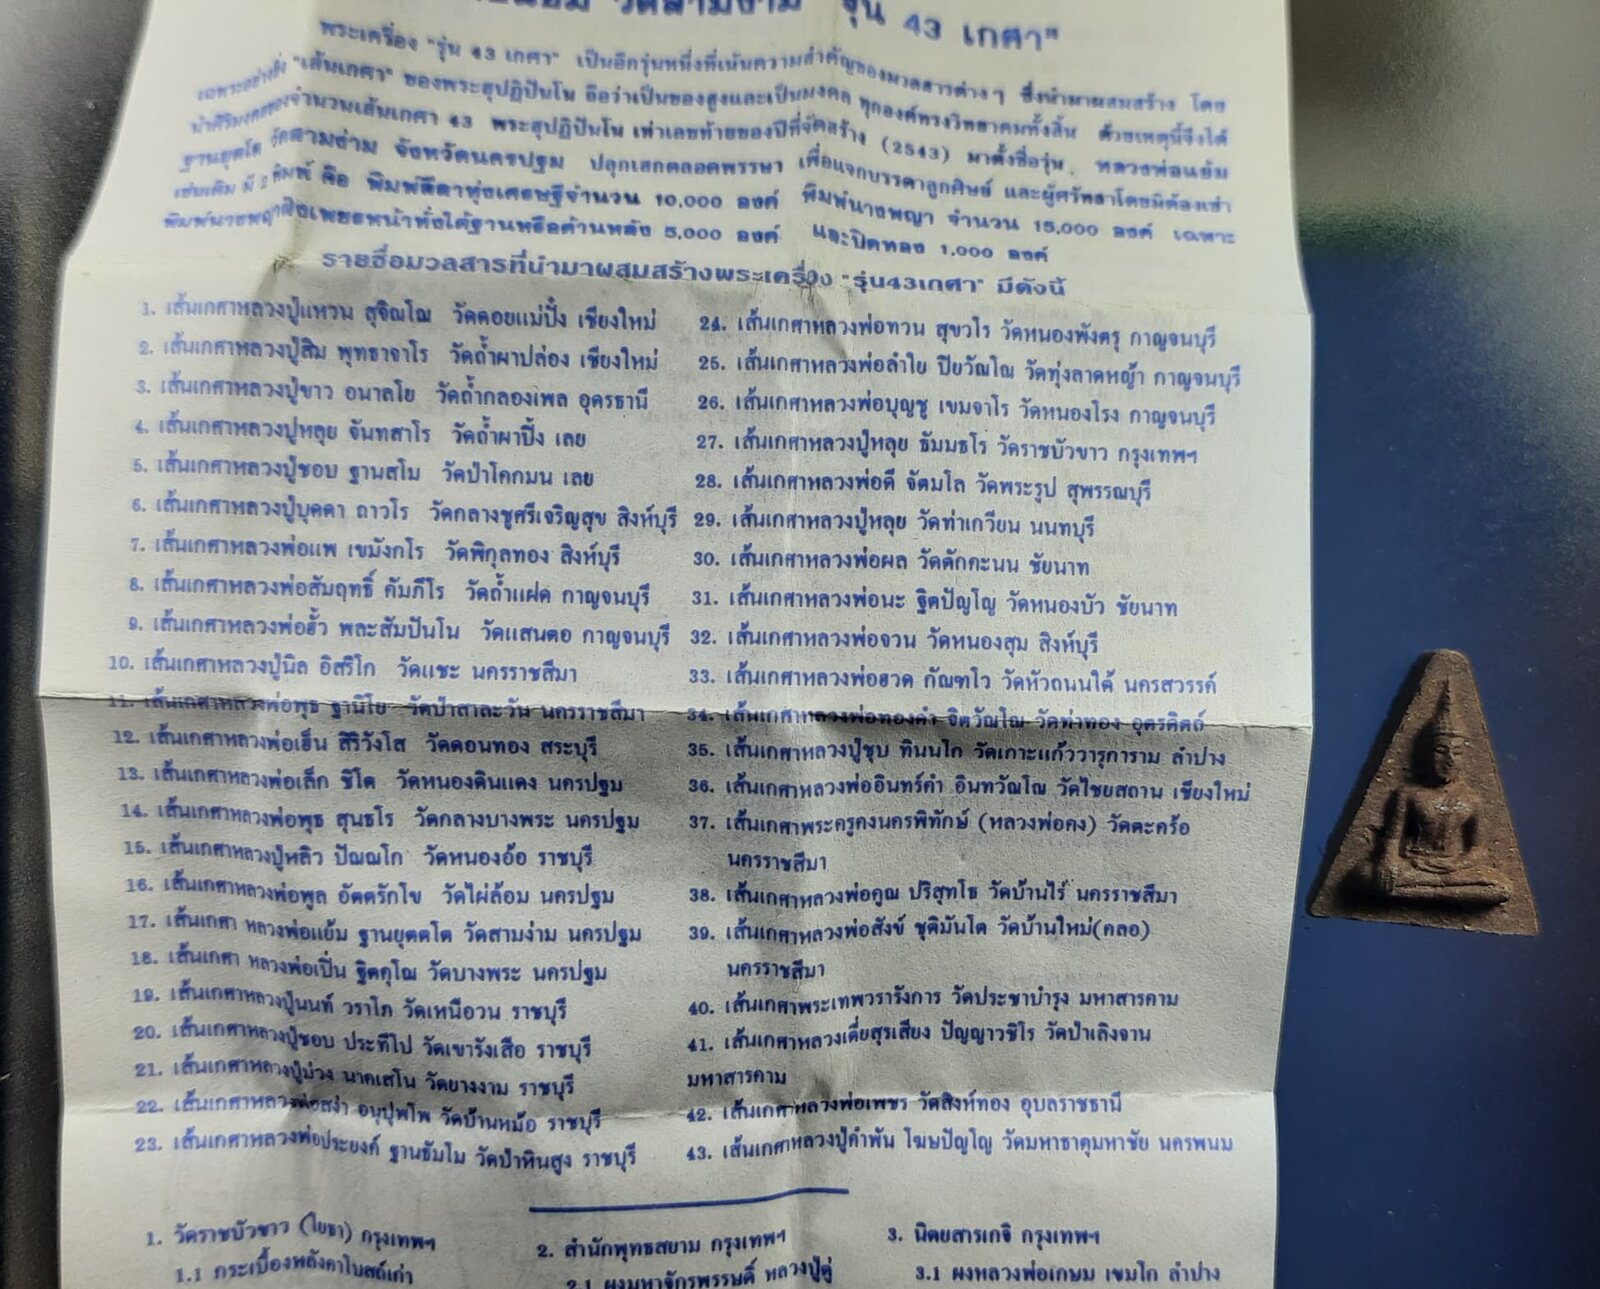 วัดสามง่าม "รุ่น 43 เกศา"
พระเครื่อง "รุ่น 43 เกศา" เป็นอีกรุ่นหนึ่งที่เน้นความสำคัญของมวลสารต่างๆ ซึ่งนำมาผสมสร้าง โดย
เฉพาะอย่างยิ่ง "เส้นเกศา" ของพระสุปฏิปันโน ถือว่าเป็นของสูงและเป็นมงคล ทุกองค์ทรงวิทยาคมทั้งสิ้น ด้วยเหตุนี้จึงได้
นำศิริมงคลของจำนวนเส้นเกศา 43 พระสุปฏิปันโน เท่าเลขท้ายของปีที่จัดสร้าง (2543) มาตั้งชื่อรุ่น หลวงพ่อแย้ม
ฐานยุตโต วัดสามง่าม จังหวัดนครปฐม ปลุกเสกตลอดพรรษา เพื่อแจกบรรดาลูกศิษย์ และผู้ศรัทธาโดยมิต้องเช่า
เช่นเดิม มี 2 พิมพ์ คือ พิมพ์ลีลาทุ่งเศรษฐีจำนวน 10,000 องค์ พิมพ์นางพญา จำนวน 15,000 องค์ เฉพาะ
พิมพ์นางพญาฝังเพชรหน้าทั่งใต้ฐานหรือด้านหลัง 5,000 องค์ และปิดทอง 1,000 องค์
รายชื่อมวลสารที่นำมาผสมสร้างพระเครื่อง "รุ่น43เกศา" มีดังนี้
1. เส้นเกศาหลวงปู่แหวน สุจิณโณ วัดดอยแม่ปั๋ง เชียงใหม่
2. เส้นเกศาหลวงปู่สิม พุทธาจาโร วัดถ้ำผาปล่อง เชียงใหม่
3. เส้นเกศาหลวงปู่ขาว อนาลโย วัดถ้ำกลองเพล อุดรธานี
4. เส้นเกศาหลวงปู่หลุย จันทสาโร วัดถ้ำผาปิ้ง เลย
5. เส้นเกศาหลวงปู่ชอบ ฐานสโม วัดป่าโคกมน เลย
6. เส้นเกศาหลวงปู่บุดดา ถาวโร วัดกลางชูศรีเจริญสุข สิงห์บุรี
7. เส้นเกศาหลวงพ่อแพ เขมังกโร วัดพิกุลทอง สิงห์บุรี
8. เส้นเกศาหลวงพ่อสัมฤทธิ์ คัมภีโร วัดถ้ำแฝด กาญจนบุรี
9. เส้นเกศาหลวงพ่อฮั้ว พละสัมปันโน วัดแสนตอ กาญจนบุรี
10. เส้นเกศาหลวงปู่นิล อิสริโก วัดแชะ นครราชสีมา
11. เส้นเกศาหลวงพ่อพุธ ฐานิโย วัดป่าสาละวัน นครราชสีมา
12. เส้นเกศาหลวงพ่อเฮ็น สิริวังโส วัดดอนทอง สระบุรี
13. เส้นเกศาหลวงพ่อเล็ก ชิโต วัดหนองดินแดง นครปฐม
14. เส้นเกศาหลวงพ่อพุธ สุนธโร วัดกลางบางพระ นครปฐม
15. เส้นเกศาหลวงปู่หลิว ปัณณโก วัดหนองอ้อ ราชบุรี
16. เส้นเกศาหลวงพ่อพูล อัตตรักโข วัดไผ่ล้อม นครปฐม
17. เส้นเกศา หลวงพ่อแย้ม ฐานยุตตโต วัดสามง่าม นครปฐม
18. เส้นเกศา หลวงพ่อเปิ่น ฐิตคุโณ วัดบางพระ นครปฐม
19. เส้นเกศาหลวงปู่นนท์ วราโภ วัดเหนือวน ราชบุรี
20. เส้นเกศาหลวงปู่ชอบ ประทีโป วัดเขารังเสือ ราชบุรี
21. เส้นเกศาหลวงปู่ม่วง นาคเสโน วัดยางงาม ราชบุรี
22. เส้นเกศาหลวงพ่อสง่า อนุปุพโพ วัดบ้านหม้อ ราชบุรี
23. เส้นเกศาหลวงพ่อประยงค์ ฐานธัมโม วัดป่าหินสูง ราชบุรี
24. เส้นเกศาหลวงพ่อทวน สุขวโร วัดหนองพังตรุ กาญจนบุรี
25. เส้นเกศาหลวงพ่อลำใย ปิยวัณโณ วัดทุ่งลาดหญ้า กาญจนบุรี
26. เส้นเกศาหลวงพ่อบุญชู เขมจาโร วัดหนองโรง กาญจนบุรี
27. เส้นเกศาหลวงปู่หลุย ธัมมธโร วัดราชบัวขาว กรุงเทพฯ
28. เส้นเกศาหลวงพ่อดี จัตมโล วัดพระรูป สุพรรณบุรี
29. เส้นเกศาหลวงปู่หลุย วัดท่าเกวียน นนทบุรี
30. เส้นเกศาหลวงพ่อผล วัดดักคะนน ชัยนาท
31. เส้นเกศาหลวงพ่อนะ ฐิตปัญโญ วัดหนองบัว ชัยนาท
32. เส้นเกศาหลวงพ่อจวน วัดหนองสุม สิงห์บุรี
33. เส้นเกศาหลวงพ่อฮวด กัณฑโว วัดหัวถนนใต้ นครสวรรค์
34. เส้นเกศาหลวงพ่อทองดำ จิตวัณโณ วัดท่าทอง อุตรดิตถ์
35. เส้นเกศาหลวงปู่ชุบ ทินนโก วัดเกาะแก้ววารุการาม ลำปาง
36. เส้นเกศาหลวงพ่ออินทร์คำ อินทวัณโณ วัดไชยสถาน เชียงใหม่
37. เส้นเกศาพระครูคงนครพิทักษ์ (หลวงพ่อคง) วัดตะคร้อ
นครราชสีมา
38. เส้นเกศาหลวงพ่อคูณ ปริสุทโธ วัดบ้านไร่ นครราชสีมา
39. เส้นเกศาหลวงพ่อสังข์ ชุติมันโต วัดบ้านใหม่(คลอ)
นครราชสีมา
40. เส้นเกศาพระเทพวรารังการ วัดประชาบำรุง มหาสารคาม
41. เส้นเกศาหลวงเตี่ยสุรเสียง ปัญญาวชิโร วัดป่าเลิงจาน
มหาสารคาม
42. เส้นเกศาหลวงพ่อเพชร วัดสิงห์ทอง อุบลราชธานี
43. เส้นเกศาหลวงปู่คำพัน โฆษปัญโญ วัดมหาธาตุมหาชัย นครพนม
1. วัดราชบัวขาว (โยธา) กรุงเทพฯ
1.1 กระเบื้องหลังคาโบสถ์เก่า
2. สำนักพุทธสยาม กรุงเทพฯ
2.1 ผงมหาจักรพรรษดิ์ หลวงปู่ดู่
3. นิตยสารเกจิ กรุงเทพฯ
3.1 ผงหลวงพ่อเกษม เขมโก ลำปาง